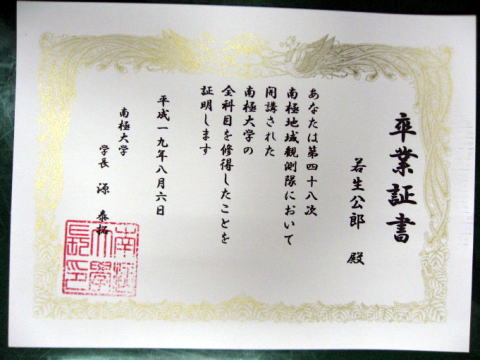 卒業証書
若生公郎 殿
あなたは第四十八次
南極地域観測隊において
開講された
南極大学の
全科目を修得したことを
証明します
平成一九年八月六日
南極大学
学長 源 泰拓
南極
大學
長印